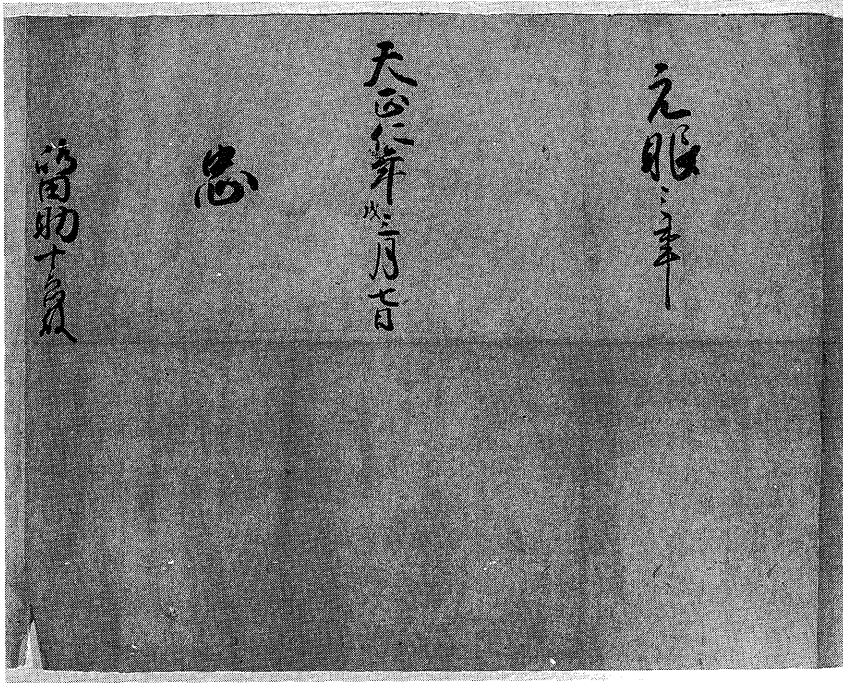 元服之事
天正仁年戌三月七日
忠
田助十郎殿